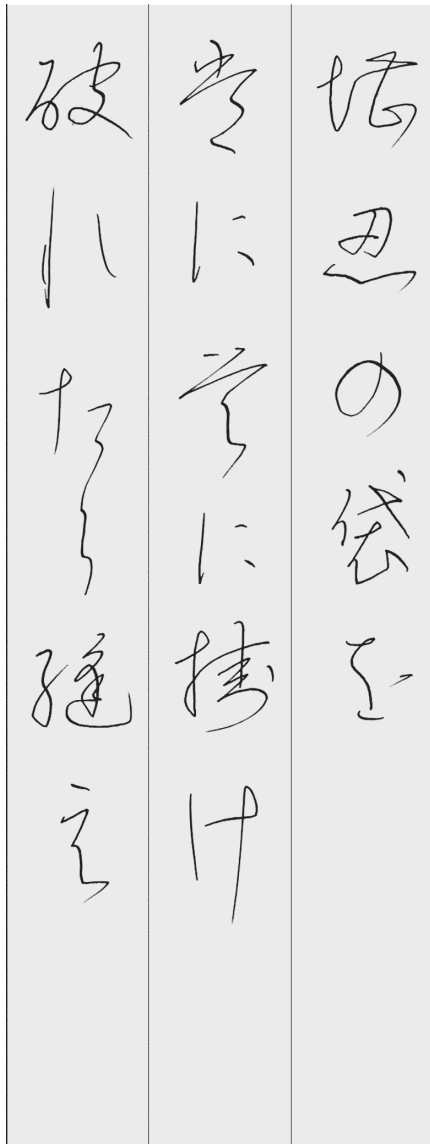 堪忍の袋を
常に首に掛け
破れたら縫え